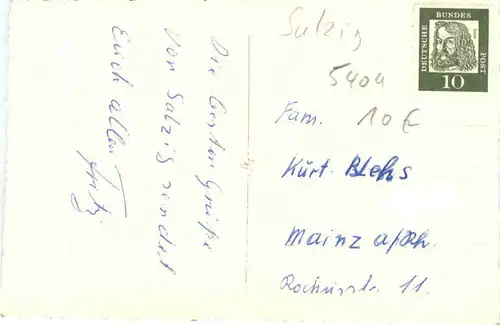 Die besten Grüße
Von Salzig sendet
Euch allen Fritz
Salzig
5404
10 €
DEUTSCHE BUNDESPOST
10
Fam.
Kurt Blehs
Mainz a/Rh.
Rochusstr. 11.